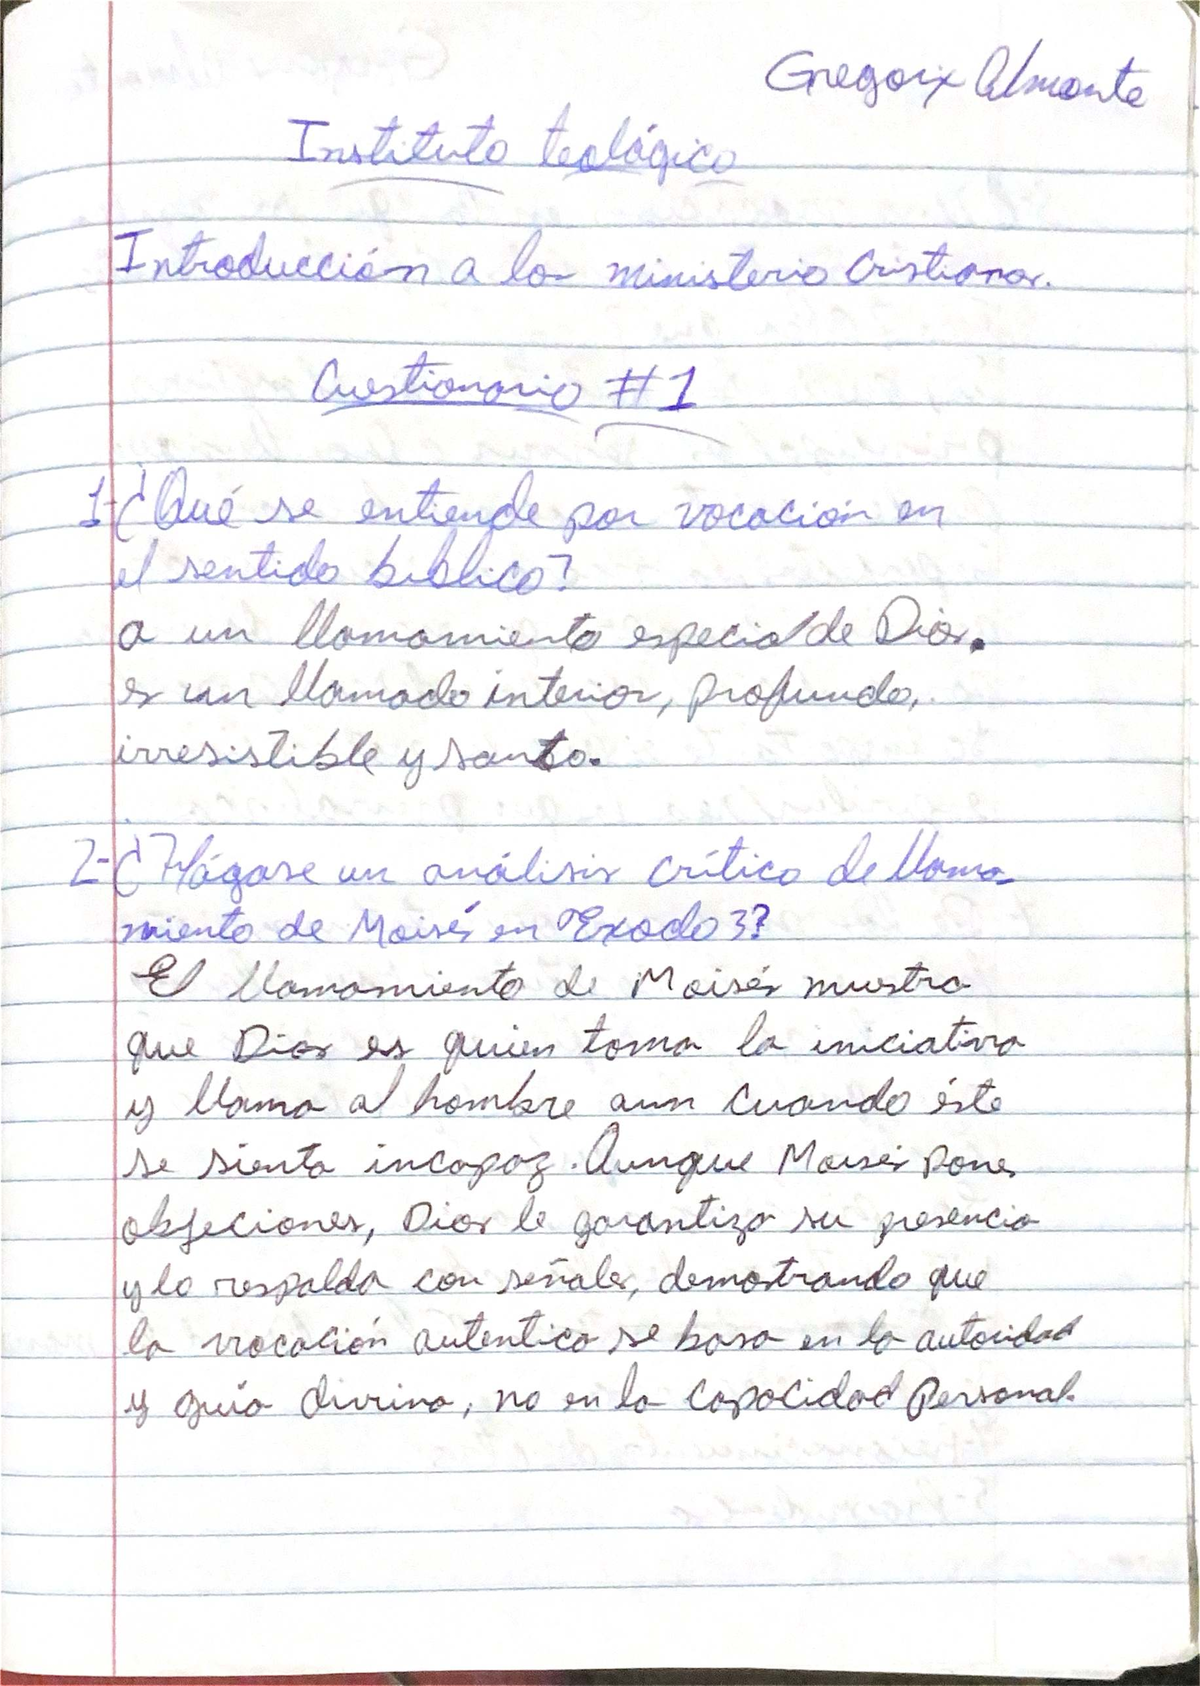 Gregorix Almonte
Instituto teológico
Introducción a los ministerio Cristianos.
Cuestionario #1
1-¿Qué se entiende por vocación en
el sentido biblico?
a un llamamiento especial de Dios.
es un llamado interior, profundo,
irresistible y santo.
2-¿Hágase un análisis crítico de llama-
miento de Moisés en Exodo 3?
El llamamiento de Moisés muestra
que Dios es quien toma la iniciativa
y llama al hombre aun cuando éste
se sienta incapaz. Aunque Moisés pone
objeciones, Dios le garantiza su presencia
y lo respalda con señales, demostrando que
la vocación autentica se basa en la autoridad
y guía divina, no en la capacidad personal.